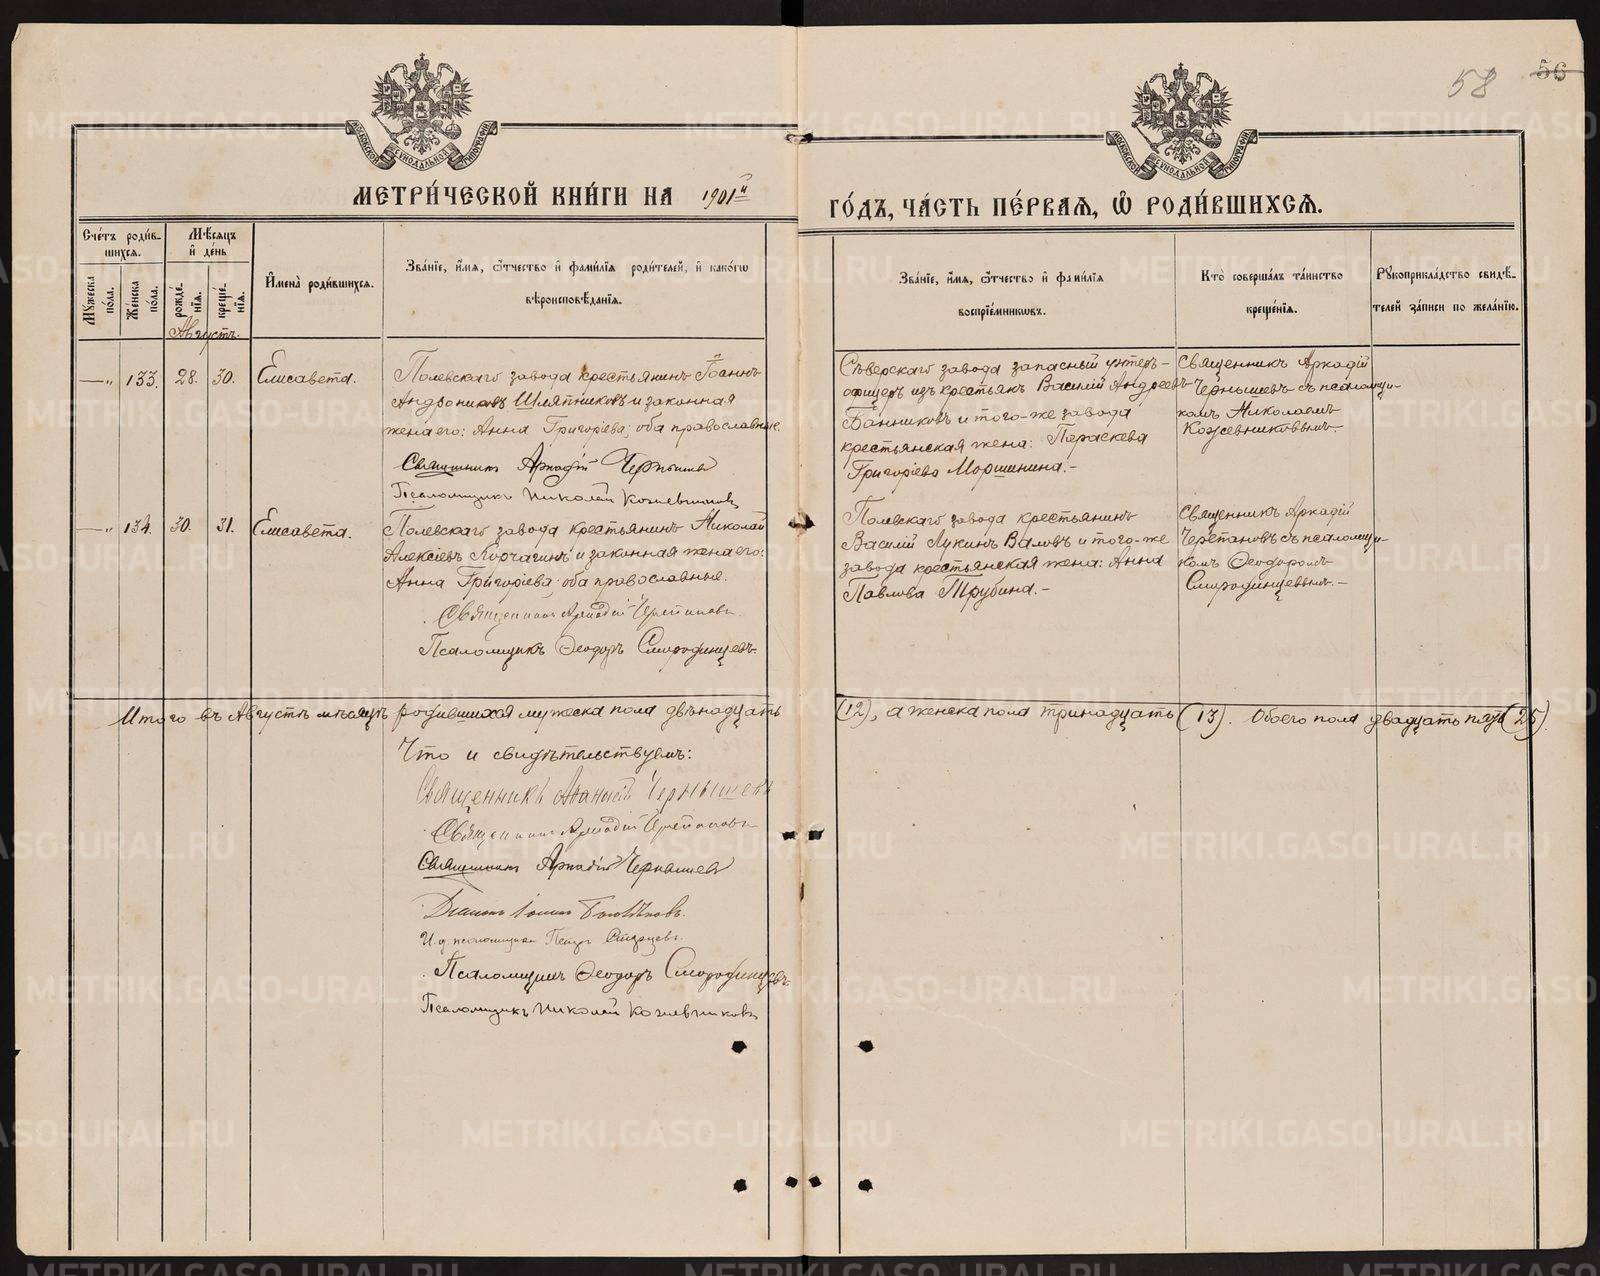 58 56
МОСКОВСКОЙ СѴНОДАЛЬНОЙ ТИПОГРАФІИ
МОСКОВСКОЙ СѴНОДАЛЬНОЙ ТИПОГРАФІИ
МЕТРИ́ЧЕСКОЙ КНИ́ГИ НА 1901й ГО́ДЪ, ЧА́СТЬ ПЕ́РВАЯ, Ѽ РОДИ́ВШИХСЯ.
Сче́тъ роди́вшихся.
Му́жеска по́ла.
Же́нска по́ла.
Мѣ́сяцъ и́ де́нь
рожде́нїя.
креще́нїя.
И҆мена̀ роди́вшихся.
Зва́нїе, и҆́мя, ѻ҆́тчество и҆ фами́лїя роди́телей, и҆ како́гѡ вѣроисповѣ́данїя.
Зва́нїе, и҆́мя, ѻ҆́тчество и҆ фами́лїя воспрїе́мникѡвъ.
Кто̀ соверша́лъ та́инство креще́нїя.
Рꙋкоприкла́дство свидѣ́телей за́писи по жела́нїю.
Августъ.
—„ 133. 28. 30. Елисавета.
Полевскаго завода крестьянинъ Іоаннъ
Андрониковъ Шляпниковъ и законная
жена его: Анна Григоріева; оба православные.
Священникъ Аркадій Чернышевъ
Псаломщикъ Николай Кожевниковъ
Сѣверскаго завода запасный унтеръ-
офицеръ изъ крестьянъ Василій Андреевъ
Банниковъ и того-же завода
крестьянская жена: Параскева
Григоріева Моршинина.-
Священникъ Аркадій
Чернышевъ съ псаломщи-
комъ Николаемъ
Кожевниковымъ.-
—„ 134. 30. 31. Елисавета.
Полевскаго завода крестьянинъ Николай
Алексіевъ Корчагинъ и законная жена его:
Анна Григоріева; оба православные.
Священникъ Аркадій Черепановъ.
Псаломщикъ Ѳеодоръ Смородинцевъ.
Полевскаго завода крестьянинъ
Василій Лукинъ Валовъ и того-же
завода крестьянская жена: Анна
Павлова Трубина.-
Священникъ Аркадій
Черепановъ съ псаломщи-
комъ Ѳеодоромъ
Смородинцевымъ.-
Итого въ Августѣ мѣсяцѣ родившихся мужеска пола двѣнадцать (12), а женска пола тринадцать (13). Обоего пола двадцать пять (25).
Что и свидѣтельствуемъ:
Священникъ Аѳанасій Чернышевъ
Священникъ Аркадій Черепановъ
Священникъ Аркадій Чернышевъ
Діаконъ Іоаннъ
И. д. псаломщика Петръ Старцевъ.
Псаломщикъ Ѳеодоръ Смородинцевъ.
Псаломщикъ Николай Кожевниковъ
METRIKI.GASO-URAL.RU